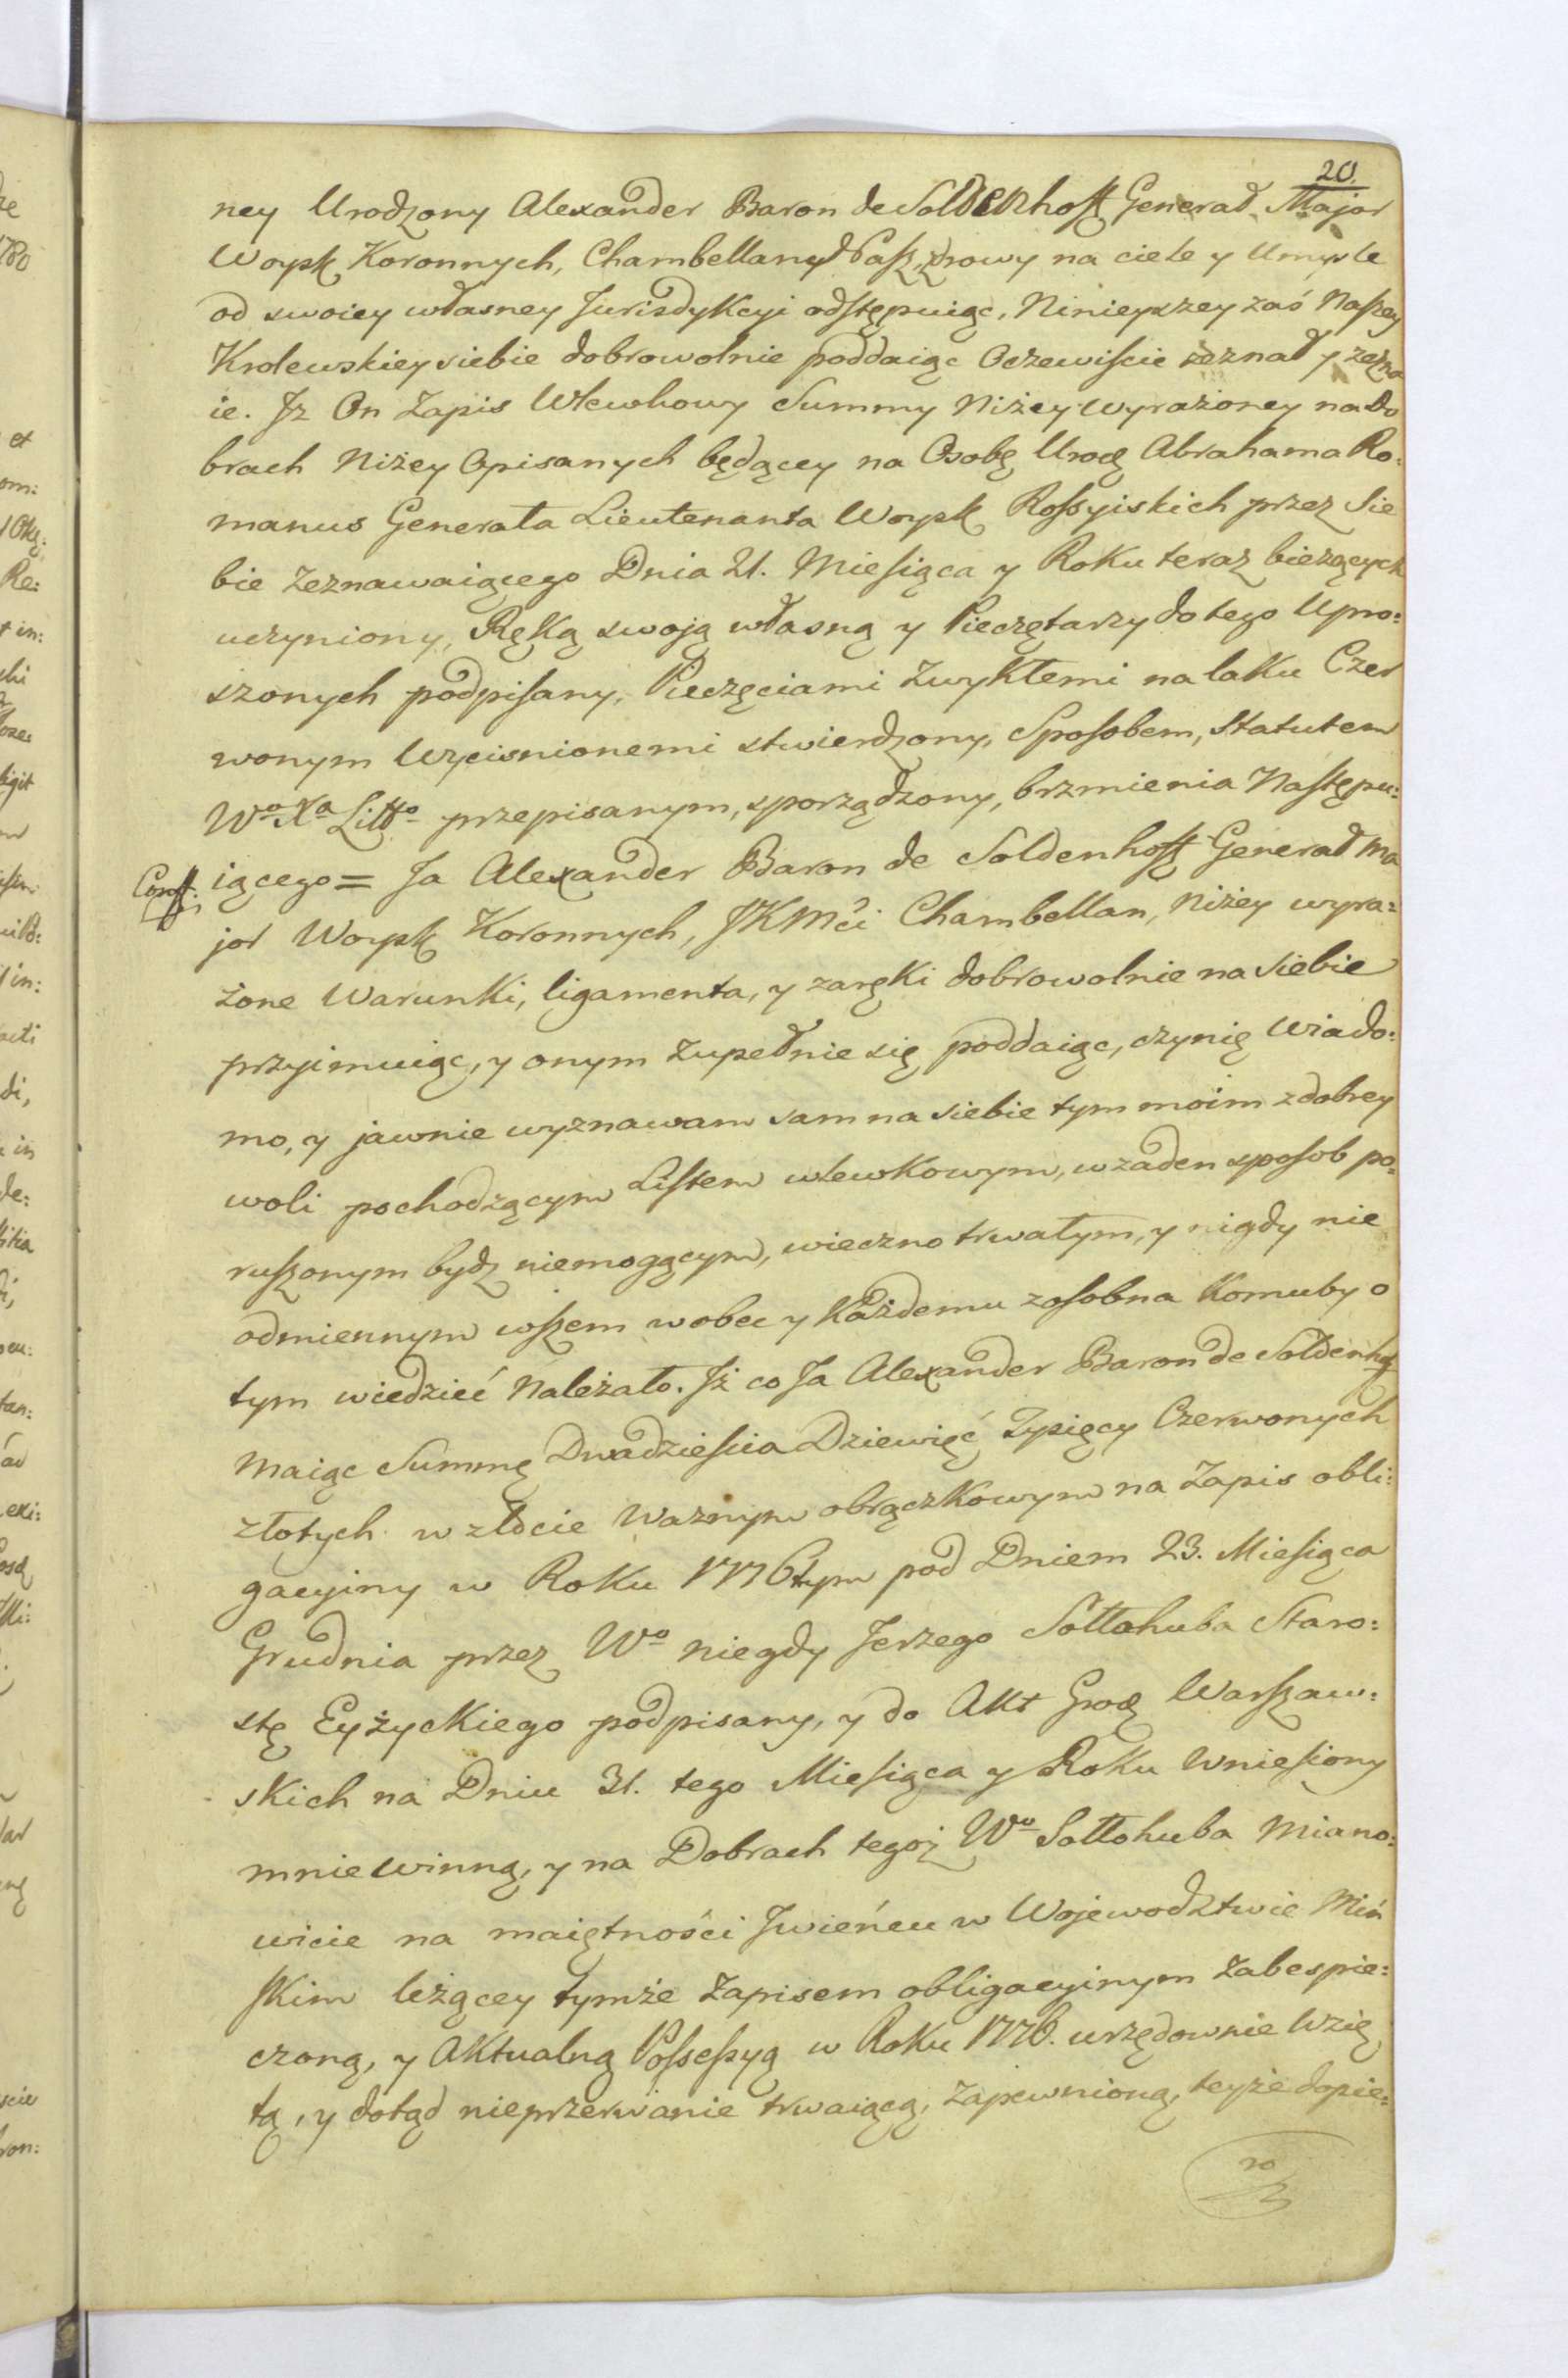 20.
ney Urodzony Alexander Baron de Soldenhoff Generał Major
Woysk Koronnych, Chambellan Nasz, zdrowy na ciele y Umyśle
od swoiey własney Jurisdykcyi odstępuiąc, Ninieyszey zaś Naszey
Krolewskiey siebie dobrowolnie poddaiąc Oczewiście zeznał y zezna
ie. Jz On Zapis Wlewkowy Summy Niżey wyrażoney na do
brach Niżey Opisanych będącey na Osobę Urodz Abrahama Ro:
manus Generała Lieutenanta Woysk Rossyiskich przez Sie
bie Zeznawaiącego Dnia 21. Miesiąca y Roku teraz bieżących
uczyniony, Ręką swoją własną y Pieczętarzy do tego Upro:
szonych podpisany, Pieczęciami Zwykłemi na laku Czer
wonym Wycisnionemi stwierdzony, Sposobem, Statutem
Wo Xa Litto przepisanym, sporządzony, brzmienia Nastepu:
iącego = Ja Alexander Baron de Soldenhoff Generał Ma
jor Woysk Koronnych, JKMći Chambellan, niżey wyra:
żone Warunki, ligamenta, y zaręki dobrowolnie na siebie
przyimuiąc, y onym zupełnie się poddaiąc, czynię wiado:
mo, y jawnie wyznawam sam na siebie tym moim z dobrey
woli pochodzącym Listem wlewkowym, w zaden sposob po:
ruszonym bydz niemogącym, wieczno trwałym, y nigdy nie
odmiennym wszem wobec y Każdemu zosobna Komuby o
tym wiedzieć Należało. Jż co Ja Alexander Baron de Soldenhoff
Maiąc Summę Dwadzieścia Dziewięć Tysięcy Czerwonych
złotych w złocie Ważnym obrączkowym na Zapis obli:
gacyiny w Roku 1776tym pod Dniem 23. Miesiąca
Grudnia przez Wo niegdy Jerzego Sołłohuba Staro:
stę Eyżyckiego podpisany, y do Akt Grodz Warszaw:
skich na Dniu 31. tego Miesiąca y Roku Wniesiony
mnie winną, y na Dobrach tegoż Wo Sołłohuba Miano:
wicie na maiętności Jwieńcu w Wojewodztwie Miń
skim leżącey tymże Zapisem obligacyinym Zabespie:
czoną, y Aktualną Possessyą w Roku 1778. urzędownie Wzię
tą, y dotąd nieprzerwanie trwaiącą, Zapewnioną, teyże dopie:
20